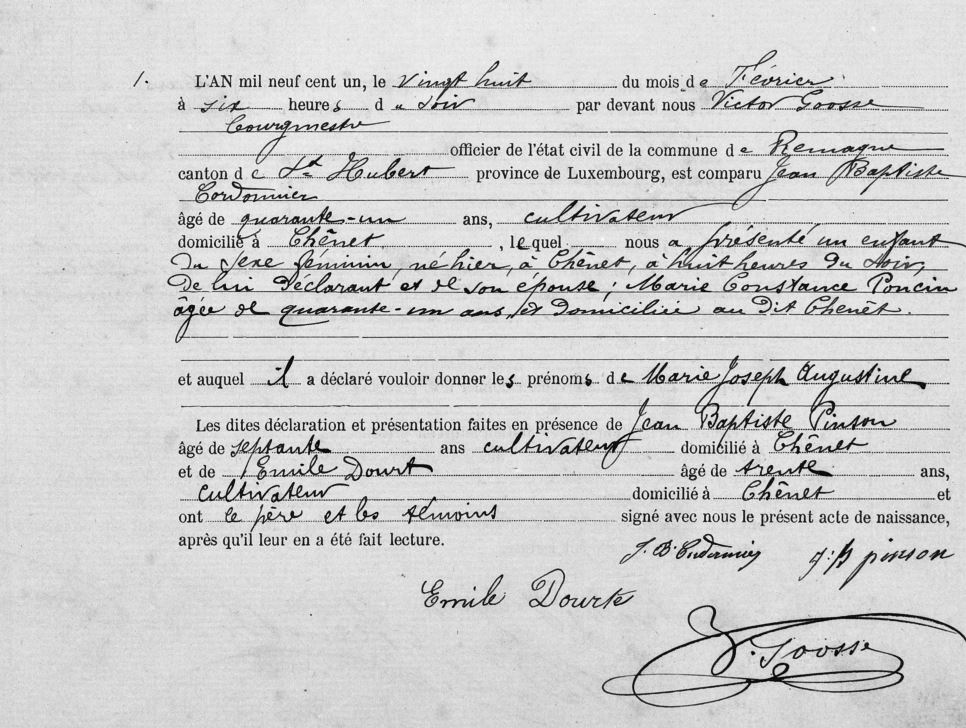 1. L'AN mil neuf cent un, le vingt huit du mois de Février
à six heures d u soir par devant nous Victor Goosse
Bourgmestre
officier de l'état civil de la commune de Remagne
canton de St Hubert province de Luxembourg, est comparu Jean Baptiste
Cordonnier
âgé de quarante-un ans, cultivateur
domicilié à Chênet, lequel nous a présenté un enfant
du sexe féminin, né hier, à Chênet, à huit heures du soir,
de lui déclarant et de son épouse; Marie Constance Poncin
âgée de quarante-un ans, et domiciliée au dit Chenêt.
et auquel il a déclaré vouloir donner les prénoms de Marie Joseph Augustine
Les dites déclaration et présentation faites en présence de Jean Baptiste Pinson
âgé de septante ans cultivateur domicilié à Chênet
et de Emile Dourt âgé de trente ans,
cultivateur domicilié à Chênet et
ont le père et les témoins signé avec nous le présent acte de naissance,
après qu'il leur en a été fait lecture.
J. B. Cordonnier J: B pinson
Emile Dourte
V. Goosse